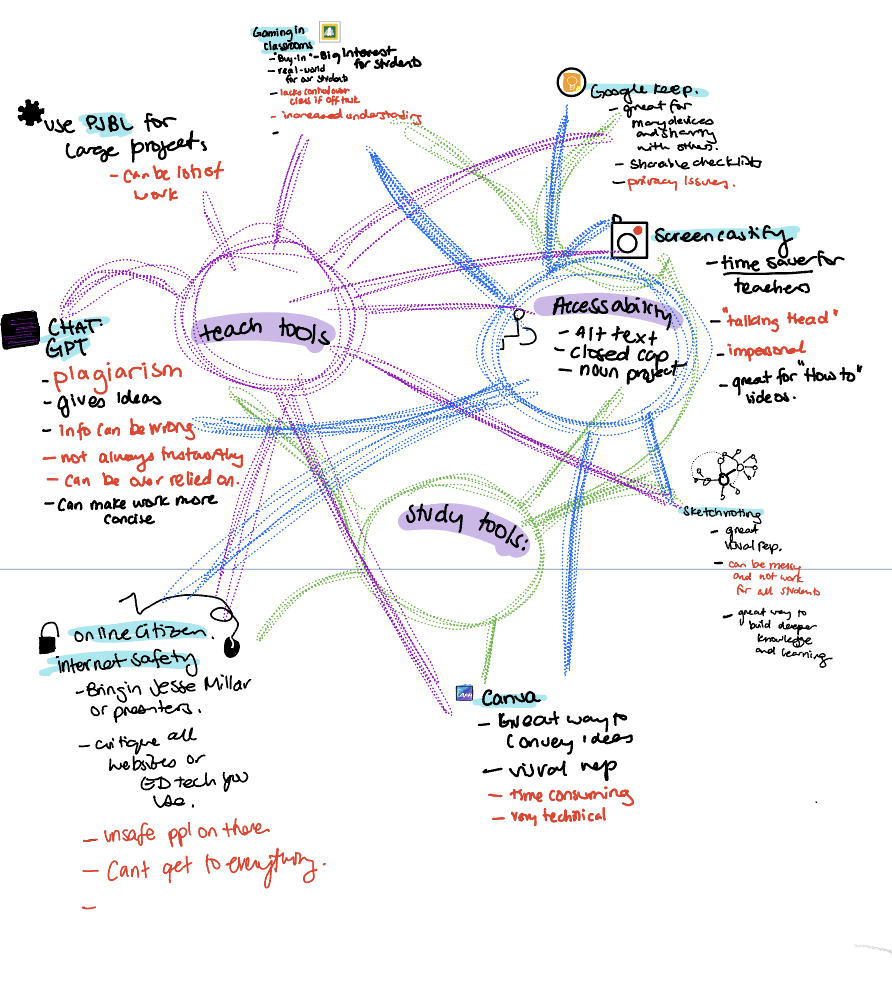 Gaming in
classrooms
- "Buy-In" - Big interest
for students
- real-world
for our students
- lacks control over
class if off task
- increased understanding
-
use PJBL for
large projects
- can be lots of
work
Google Keep.
- great for
many devices
and sharing
with others.
- sharable checklists
- privacy issues.
Screencastify
- time saver for
teachers
- "talking head"
- impersonal
- great for "How to"
videos.
teach tools
Accessability
- Alt text
- closed cap
- noun project
CHAT-
GPT
- plagiarism
- gives ideas
- info can be wrong
- not always trustworthy
- can be over relied on.
- Can make work more
concise
study tools:
sketchnoting
- great
visual rep.
- can be messy
and not work
for all students
- great way to
build deeper
knowledge
and learning
online citizen.
internet safety
- Bring in Jesse Millar
or presenters.
- critique all
websites or
ED tech you
use.
- unsafe ppl on there
- Cant get to everything.
-
Canva
- Great way to
convey ideas
- visual rep
- time consuming
- very technical